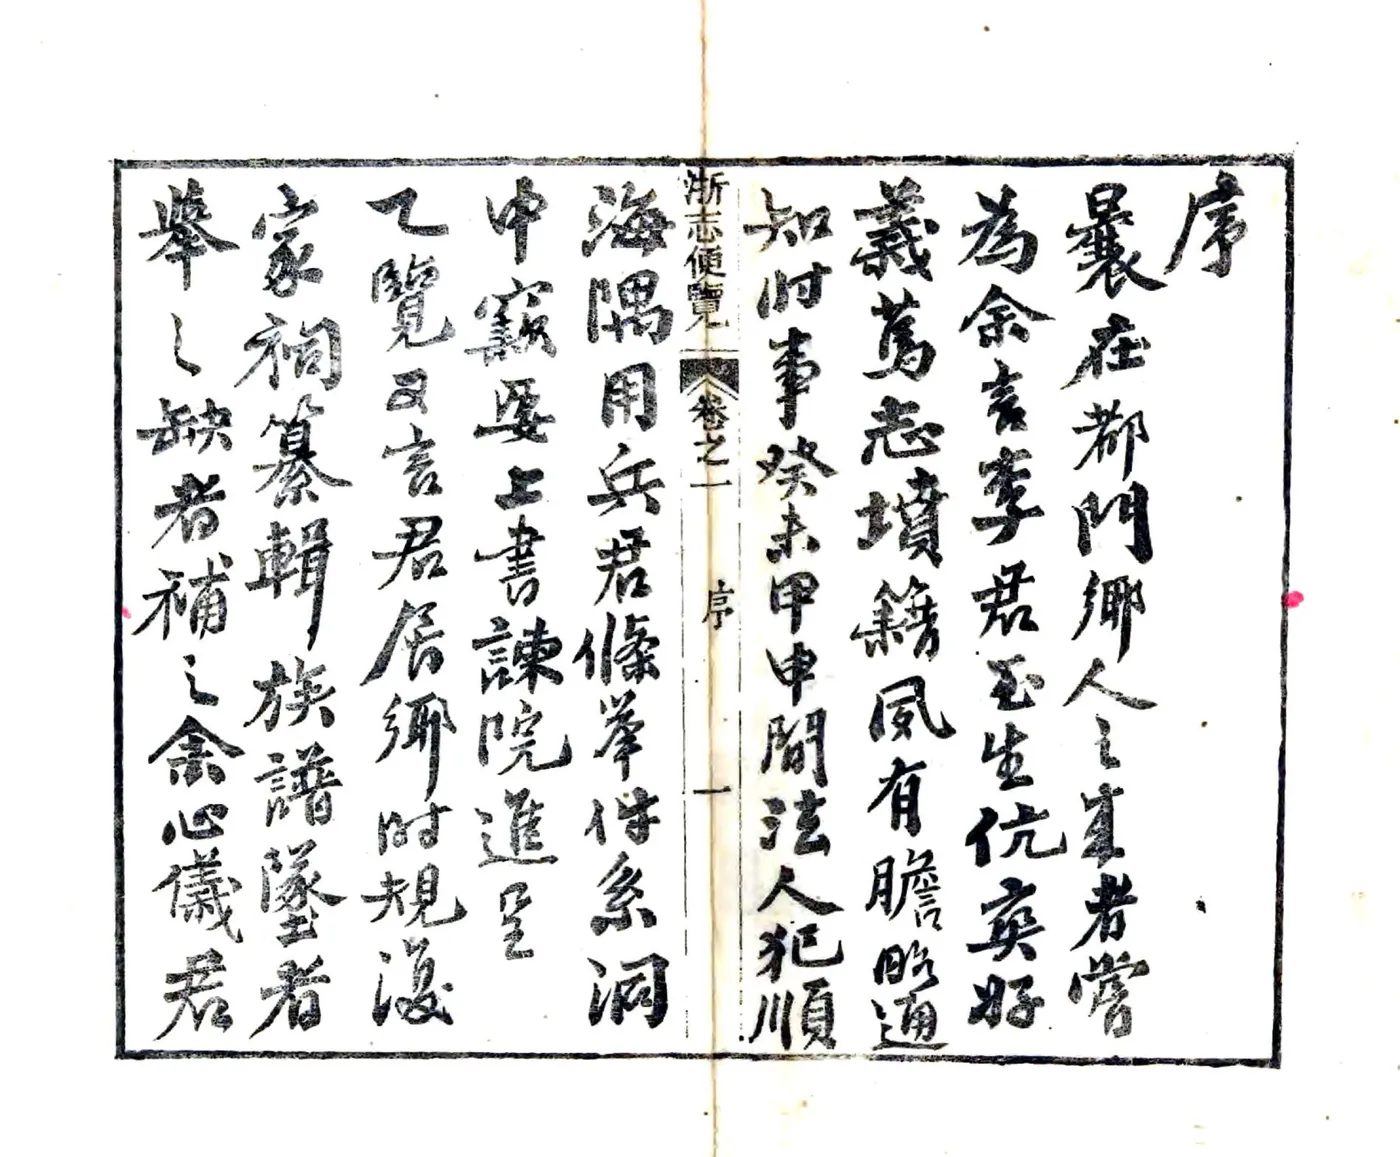 序
曩在都門鄉人之来者嘗
為余言李君玉生伉爽好
義篤志墳籍夙有膽略通
知时事癸未甲申間法人犯順
浙志便覽 卷之一 序 一
海隅用兵君條举件系洞
中窾要上書諫院進呈
乙覽又言君居鄉时規復
家祠纂輯族譜墜者
舉之缺者補之余心儀君